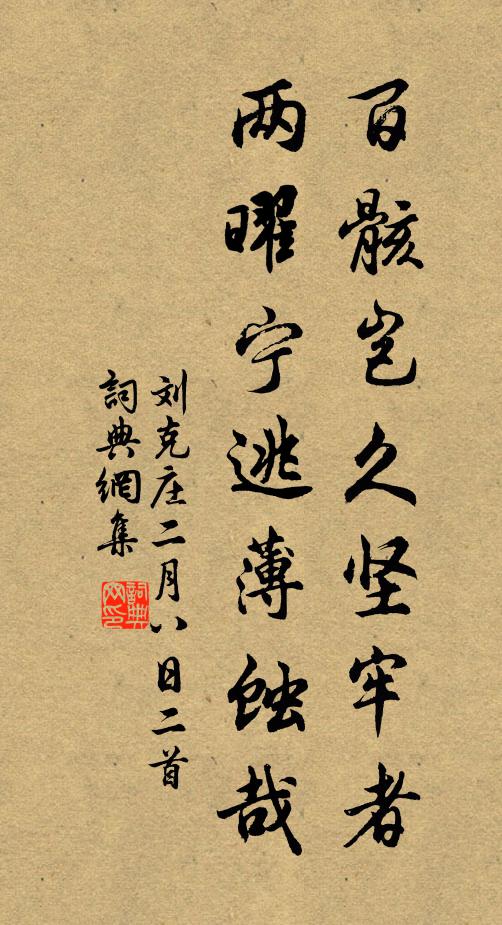 百骸岂久坚牢者
两曜宁逃薄蚀哉
刘克庄二月八日二首
詞典網集
詞典网印